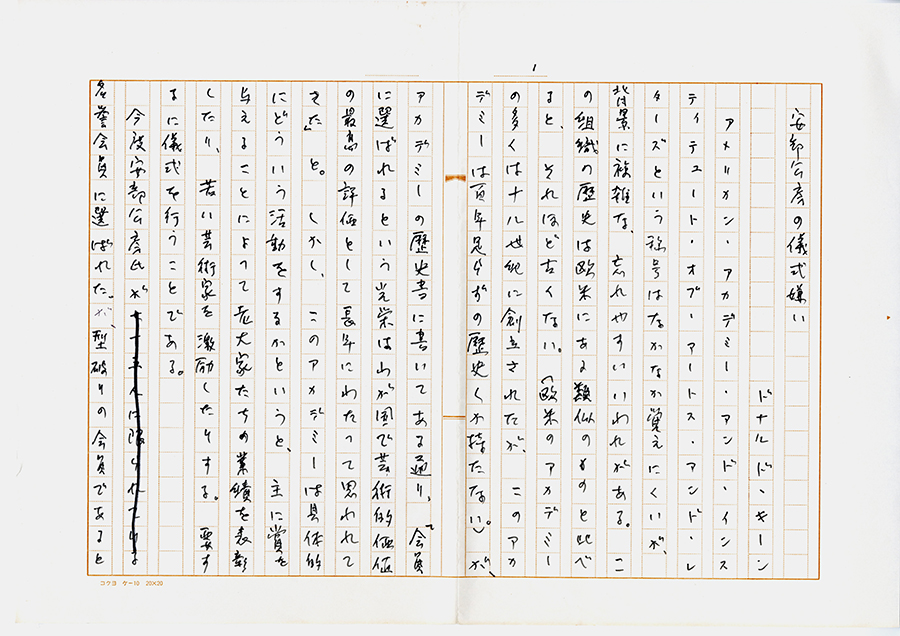 1
安部公房の儀式嫌い
ドナルド・キーン
アメリカン・アカデミー・アンド・インス
ティテュート・オブ・アートス・アンド・レ
ターズという称号はなかなか覚えにくいが、
背景に複雑な、忘れやすいいわれがある。こ
の組織の歴史は欧米にある類似のものと比べ
ると、それほど古くない。(欧米のアカデミー
の多くは十八世紀に創立されたが、このアカ
デミーは百年足らずの歴史しか持たない。)が、
アカデミーの歴史書に書いてある通り、「会員
に選ばれるという光栄はわが国で芸術的価値
の最高の評価として長年にわたって思われて
きた」と。しかし、このアカデミーは具体的
にどういう活動をするかというと、主に賞を
与えることによって老大家たちの業績を表彰
したり、若い芸術家を激励したりする。要す
るに儀式を行うことである。
今度安部公房氏が
名誉会員に選ばれた。が、型破りの会員であると
コクヨ ケー10 20×20